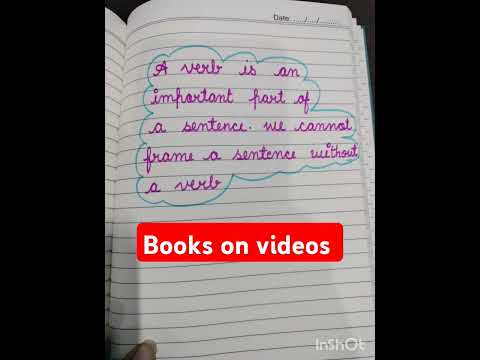 Date: ...../..../.........
A verb is an
important part of
a sentence. we cannot
frame a sentence without
a verb
Books on videos
InShOt